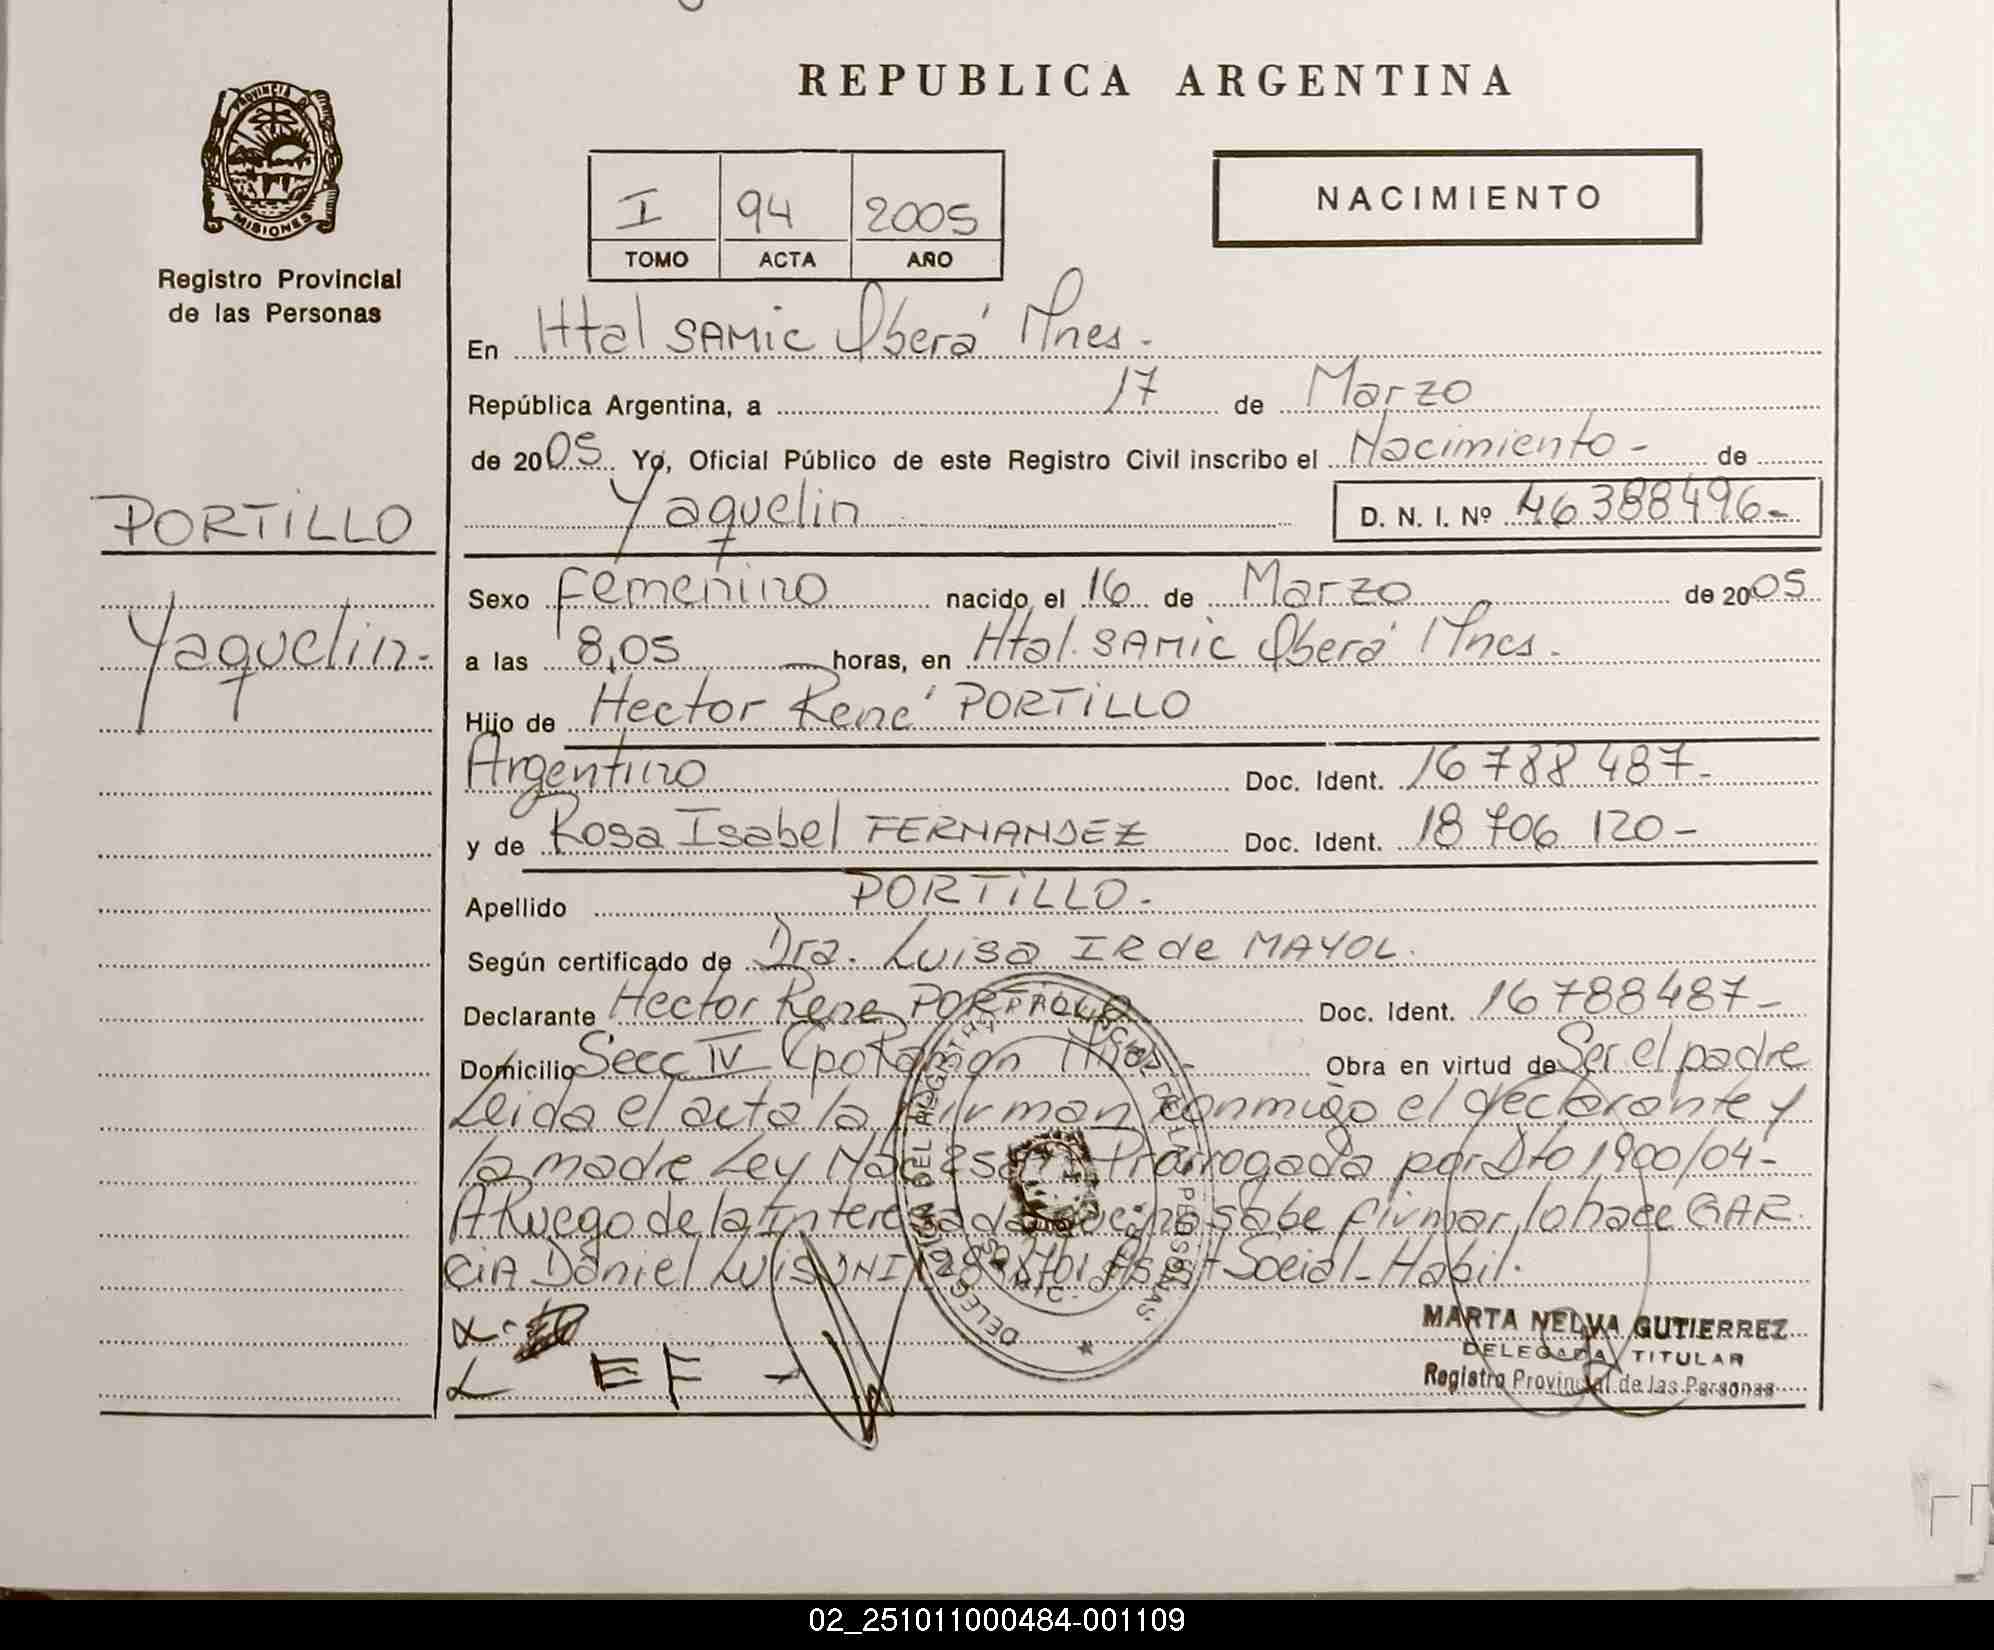 REPUBLICA ARGENTINA
PROVINCIA DE
MISIONES
Registro Provincial
de las Personas
I 94 2005
TOMO ACTA AÑO
NACIMIENTO
En Htal SAMIC Oberá Mnes.
República Argentina, a 17 de Marzo
de 2005. Yo, Oficial Público de este Registro Civil inscribo el Nacimiento - de
Yaquelin D. N. I. Nº 46388496-
PORTILLO
Yaquelin.
Sexo femenino nacido el 16 de Marzo de 2005
a las 8,05 horas, en Htal. SAMIC Oberá Mnes.
Hijo de Hector René PORTILLO
Argentino Doc. Ident. 16788487-
y de Rosa Isabel FERNANDEZ Doc. Ident. 18706120-
Apellido PORTILLO.
Según certificado de Dra. Luisa IR de MAYOL.
Declarante Hector Rene PORTILLO Doc. Ident. 16788487-
Domicilio Secc IV Cpo Ramon Obra en virtud de Ser el padre
Leida el acta la firman conmigo el declarante y
la madre Ley Prorrogada por Dto 1900/04-
A Ruego de la Interesada que no sabe firmar lo hace GAR
CIA Daniel Luis DNI Asist Social-Habil.
DELEGACION DEL REGISTRO PROVINCIAL DE LAS PERSONAS
EF
MARTA NELVA GUTIERREZ
DELEGADA TITULAR
Registro Provincial de las Personas
02_251011000484-001109